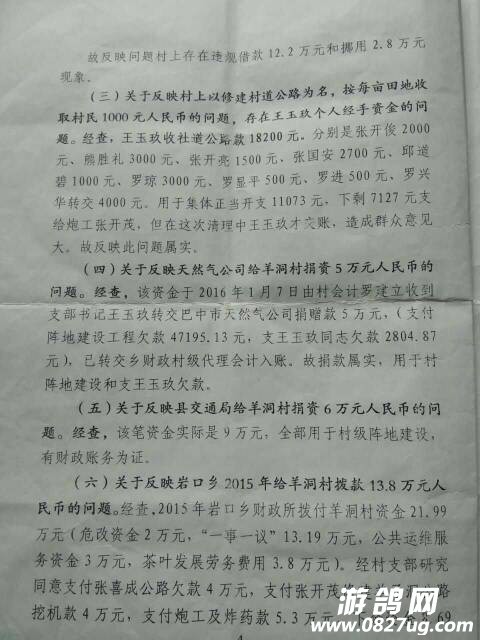 故反映问题村上存在违规借款 12.2 万元和挪用 2.8 万元
现象。
（三）关于反映村上以修建村道公路为名，按每亩田地收
取村民1000元人民币的问题，存在王玉玖个人经手资金的问
题。经查，王玉玖收社道公路款18200元。分别是张开俊2000
元、熊胜礼3000元、张开亮1500元、张国安2700元、邱道
碧1000元、罗琼3000元、罗显平500元、罗进500元、罗兴
华转交4000元。用于集体正当开支11073元，下剩7127元支
给炮工张开茂，但在这次清理中王玉玖才交账，造成群众意见
大。故反映此问题属实。
（四）关于反映天然气公司给羊洞村捐资5万元人民币的
问题。经查，该资金于2016年1月7日由村会计罗建立收到
支部书记王玉玖转交巴中市天然气公司捐赠款5万元，（支付
阵地建设工程欠款 47195.13 元，支王玉玖同志欠款 2804.87
元），已转交乡财政村级代理会计入账。故捐款属实，用于村
阵地建设和支王玉玖欠款。
（五）关于反映县交通局给羊洞村捐资6万元人民币的问
题。经查，该笔资金实际是9万元，全部用于村级阵地建设，
有财政账务为证。
（六）关于反映岩口乡2015年给羊洞村拨款13.8万元人
民币的问题。经查，2015年岩口乡财政所拨付羊洞村资金21.99
万元（危改资金2万元，“一事一议”13.19万元，公共运维服
务资金3万元，茶叶发展劳务费用3.8万元）。经村支部研究
同意支付张喜成公路欠款4万元，支付张开茂
挖机款4万元，支付炮工及炸药款5.3万元，
8.69
游鸽网
www.0827ug.com